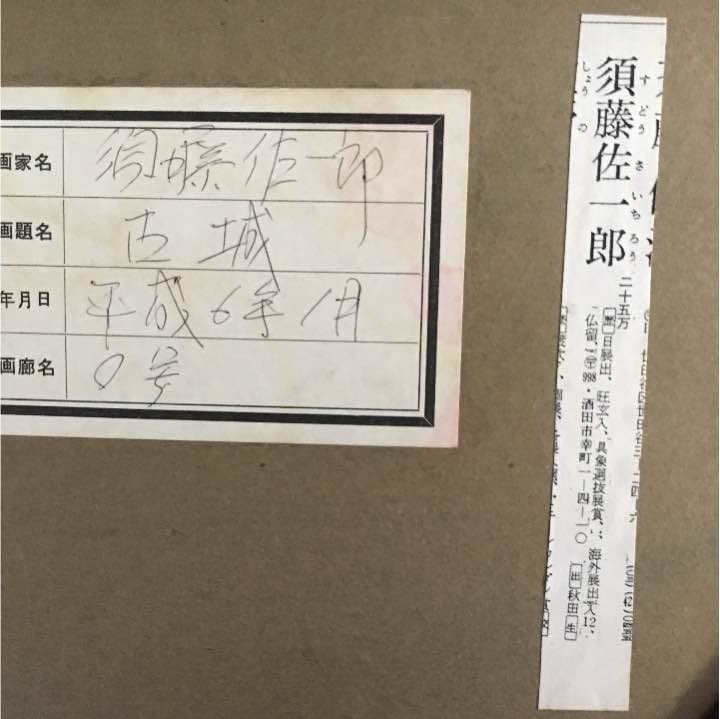 画家名 須藤佐一郎
画題名 古城
年月日 平成6年1月
画廊名 0号
須藤佐一郎
すどうさいちろう
二十五万
歴 日展出、旺玄入、具象選抜展賞、海外展出入12、
仏留、〒998・酒田市幸町一―四―一〇 出 秋田 生
しょうの
世田谷区世田谷三―二四―六